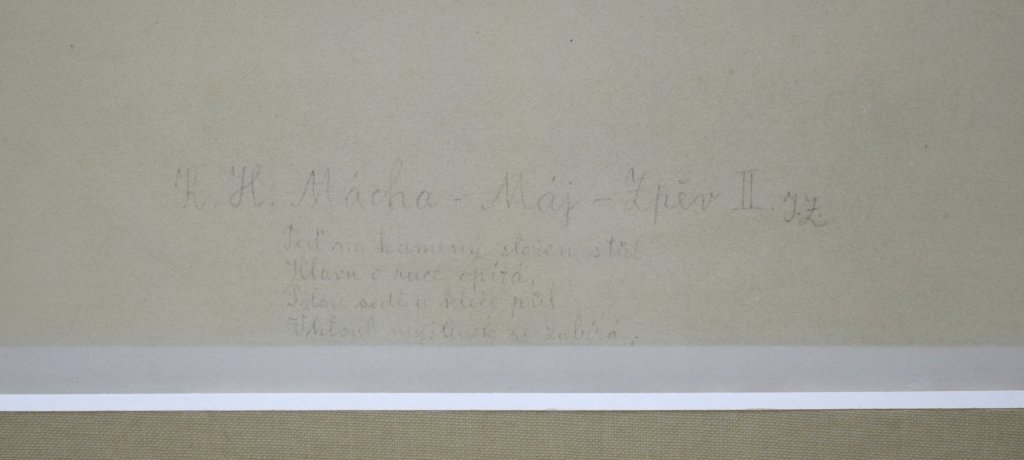 K. H. Mácha - Máj - Zpěv II. JZ
Teď na kamený složen stůl
Hlavu o ruce opírá,
Polou sedě a kleče půl
V hloub myšlenek se zabírá,